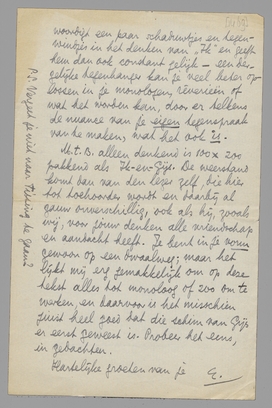 woordigt een paar schabuntjes en tegen-
windjes in het denken van "Ik" en geeft
hem dan ook constant gelijk – een der-
gelijke tegenhanger kan je veel beter op-
lossen in je monologen, rêverieën of
wat het worden kan, door er telkens
de nuance van je eigen tegenspraak
van te maken, wat het ook is.
M.t.B. alleen denkend is 100 x zoo
pakkend als Ik-en-Gijs. De weerstand
komt dan van den lezer zelf, die hier
tot toehoorder wordt en daarbij al
gauw onverschillig, ook als hij, zooals
wij, voor jouw denken alle vriendschap
en aandacht heeft. Je bent in je vorm
gewoon op een dwaalweg; maar het
lijkt mij erg gemakkelijk om op deze
tekst alles tot monoloog of zoo om te
werken, en daarvoor is het misschien
juist heel goed dat die schim van Gijs
er eerst geweest is. Probeer het eens,
in gedachten.
Hartelijke groeten van je
E.
P.S. Vergeet je niet naar Tissing te gaan?